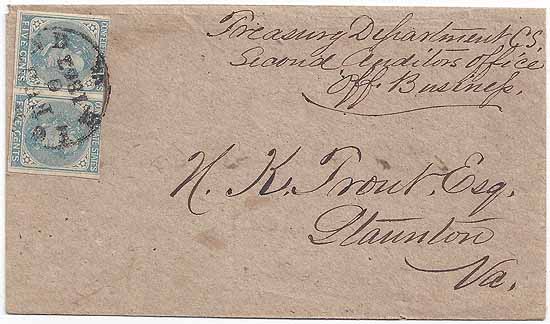 Treasury Department C.S.
Second Auditors Office
Off. Business.
N. K. Trout. Esq.
Staunton
Va.
FIVE CENTS
FIVE CENTS